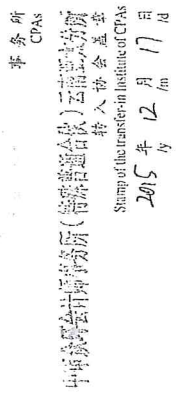 事务所
CPAs
中审众环会计师事务所（特殊普通合伙）云南亚太分所
转入协会盖章
Stamp of the transfer-in Institute of CPAs
2015 年 12 月 17 日
/y /m /d